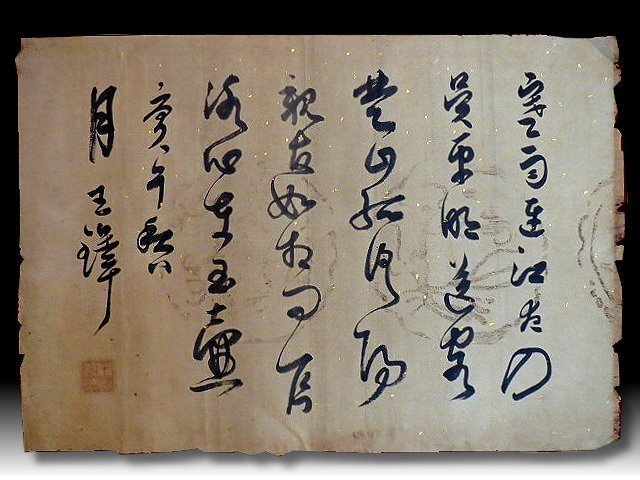 寒雨連江夜入
吳平明送客
楚山孤洛陽
親友如相问一片
冰心在玉壺
庚午秋八
月王鐸